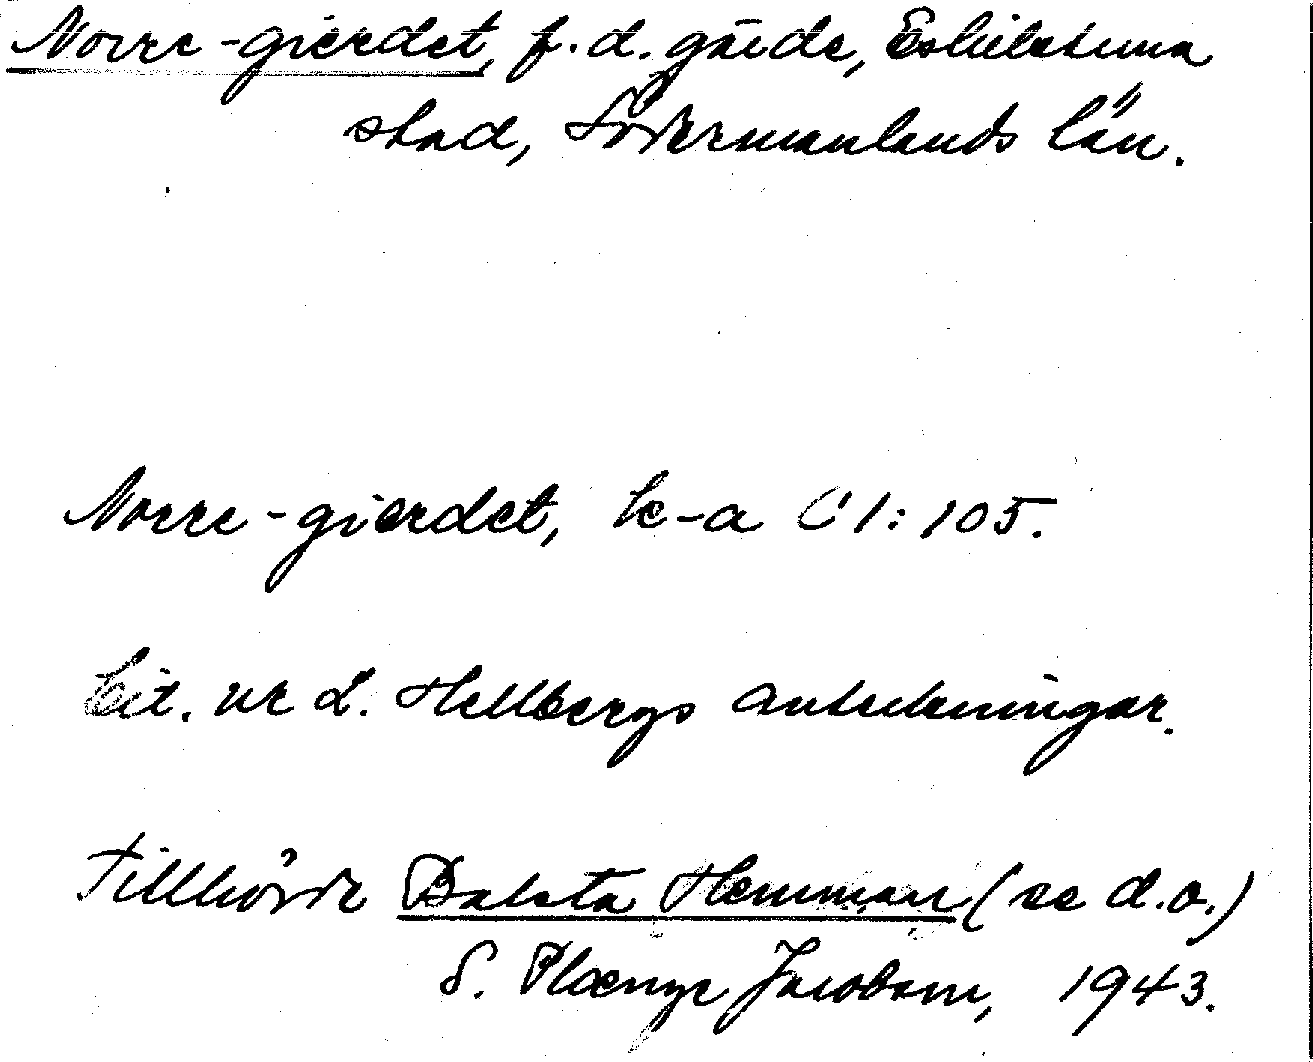 Norre-gierdet, f.d. gärde, Eskilstuna
stad, Södermanlands län.
Norre-gierdet, k-a C 1:105.
Cit. ur L. Hellbergs anteckningar.
Tillhörde Balsta Hemman (se d.o.)
S. Plænge Jacobson, 1943.